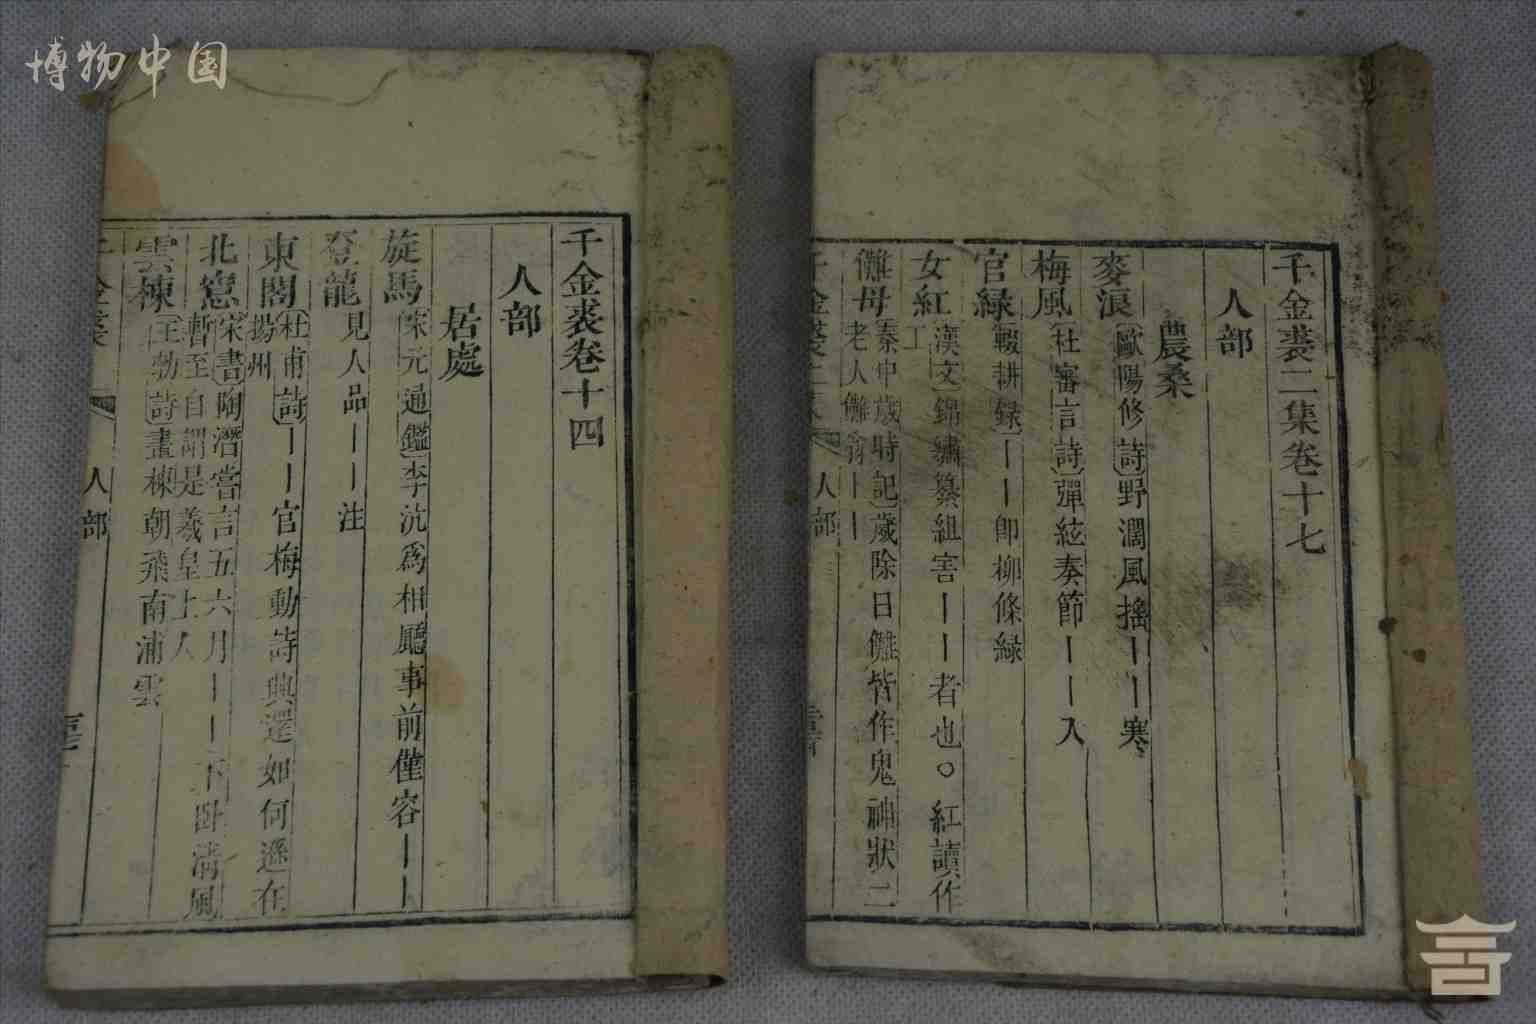 博物中国
千金裘卷十四
人部
居處
旋馬宋元通鑑李沆爲相廳事前僅容丨丨
登龍見人品丨丨注
東閣杜甫詩丨丨官梅動詩興還如何遜在
揚州
北窻宋書陶潛嘗言五六月丨丨下卧清風
暫至自謂是羲皇上人
雲棟王勃詩畫棟朝飛南浦雲
千金裘 人部
千金裘二集卷十七
人部
農桑
麥浪歐陽修詩野濶風搖丨丨寒
梅風杜審言詩彈絃奏節丨丨入
官緑輟耕録丨丨卽柳條緑
女紅漢文錦繡纂組害丨丨者也○紅讀作
工
儺母秦中歲時記歲除日儺皆作鬼神狀二
老人儺翁丨丨
千金裘二集 人部